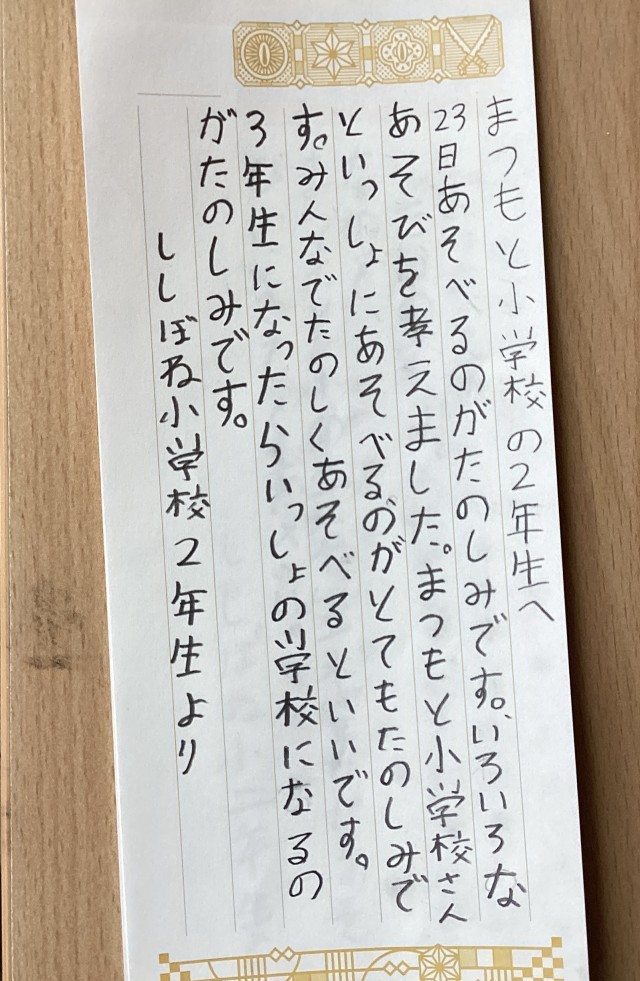 まつもと小学校の2年生へ
23日あそべるのがたのしみです。いろいろな
あそびを考えました。まつもと小学校さん
といっしょにあそべるのがとてもたのしみで
す。みんなでたのしくあそべるといいです。
3年生になったらいっしょの学校になるの
がたのしみです。
ししぼね小学校2年生より